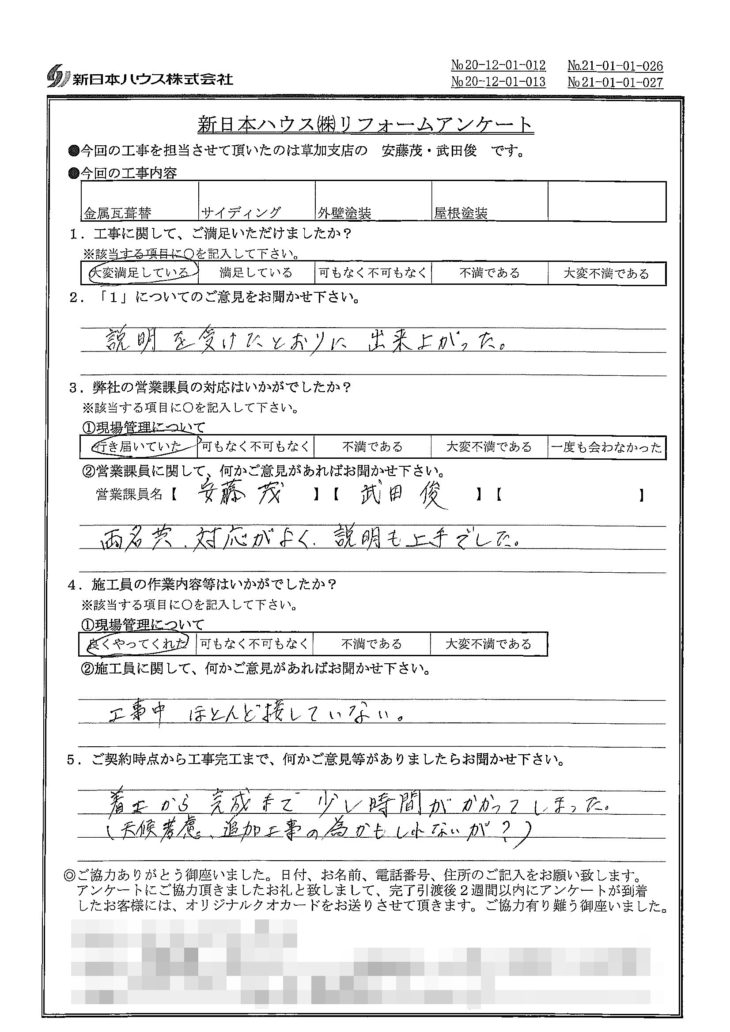 新日本ハウス株式会社
№20-12-01-012 №21-01-01-026
№20-12-01-013 №21-01-01-027
新日本ハウス㈱リフォームアンケート
●今回の工事を担当させて頂いたのは草加支店の 安藤茂・武田俊 です。
●今回の工事内容
金属瓦葺替 サイディング 外壁塗装 屋根塗装
1．工事に関して、ご満足いただけましたか？
※該当する項目に○を記入して下さい。
大変満足している 満足している 可もなく不可もなく 不満である 大変不満である
2．「1」についてのご意見をお聞かせ下さい。
説明を受けたとおりに 出来上がった。
3．弊社の営業課員の対応はいかがでしたか？
※該当する項目に○を記入して下さい。
①現場管理について
行き届いていた 可もなく不可もなく 不満である 大変不満である 一度も会わなかった
②営業課員に関して、何かご意見があればお聞かせ下さい。
営業課員名【 安藤 茂 】【 武田 俊 】【 】
両名共、対応がよく、説明も上手でした。
4．施工員の作業内容等はいかがでしたか？
※該当する項目に○を記入して下さい。
①現場管理について
良くやってくれた 可もなく不可もなく 不満である 大変不満である
②施工員に関して、何かご意見があればお聞かせ下さい。
工事中 ほとんど接していない。
5．ご契約時点から工事完工まで、何かご意見等がありましたらお聞かせ下さい。
着工から 完成まで 少し時間がかかってしまった。
(天候考慮、追加工事の為かもしれないが？)
◎ご協力ありがとう御座いました。日付、お名前、電話番号、住所のご記入をお願い致します。
アンケートにご協力頂きましたお礼と致しまして、完了引渡後２週間以内にアンケートが到着
したお客様には、オリジナルクオカードをお送りさせて頂きます。ご協力有り難う御座いました。